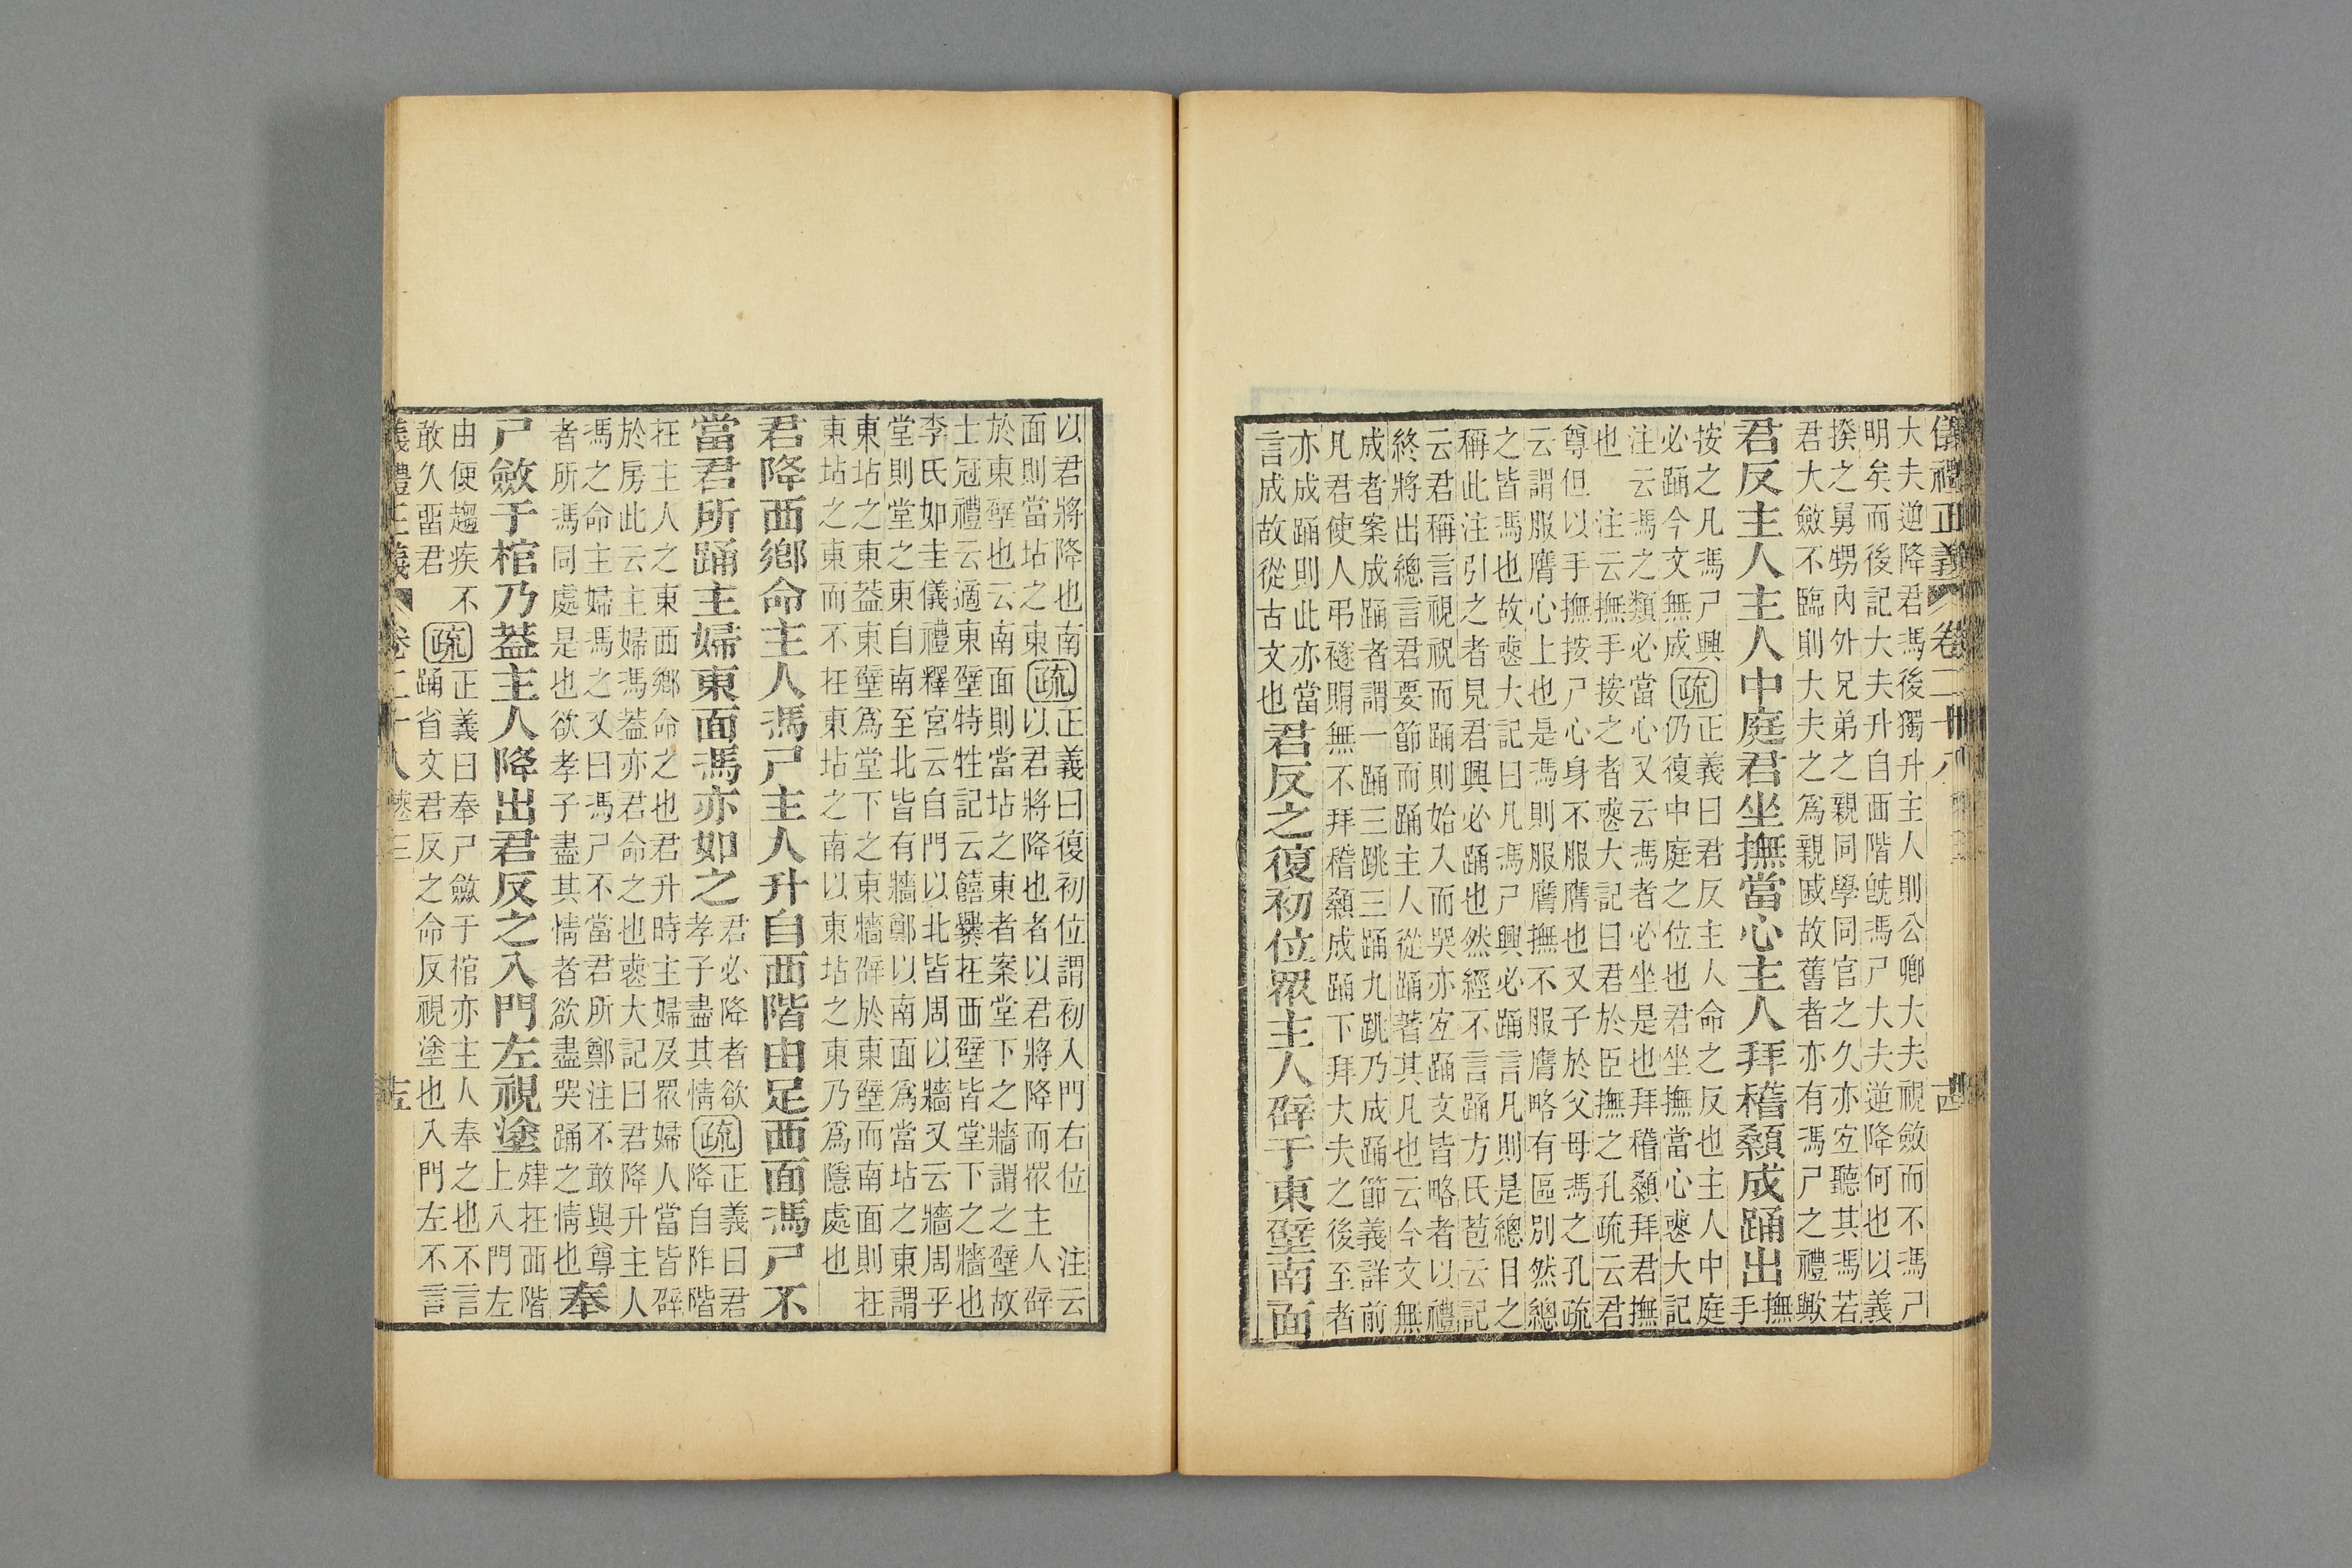 儀禮正義 卷二十八
大夫逆降君馮後獨升主人則公卿大夫視斂而不馮尸
明矣而後記大夫升自西階旣馮尸大夫逆降何也以義
揆之舅甥內外兄弟之親同學同官之久亦宐聽其馮若
君大斂不臨則大夫之爲親戚故舊者亦有馮尸之禮歟
君反主人主人中庭君坐撫當心主人拜稽顙成踊出撫
手
按之凡馮尸興
必踊今文無成
疏
正義曰君反主人命之反也主人中庭
仍復中庭之位也君坐撫當心喪大記
注云馮之類必當心又云馮者必坐是也拜稽顙拜君撫
也 注云撫手按之者喪大記曰君於臣撫之孔疏云君
尊但以手撫按尸心身不服膺也又子於父母馮之孔疏
云謂服膺心上也是馮則服膺撫不服膺略有區別然總
之皆馮也故喪大記曰凡馮尸興必踊言凡則是總目之
稱此注引之者見君興必踊也然經不言踊方氏苞云記
云君稱言視祝而踊則始入而哭亦宐踊文皆略者以禮
終將出總言君要節而踊主人從踊著其凡也云今文無
成者案成踊者謂一踊三跳三踊九跳乃成踊節義詳前
凡君使人弔襚賵無不拜稽顙成踊下拜大夫之後至者
亦成踊則此亦當
言成故從古文也
君反之復初位眾主人辟于東壁南面
以君將降也南
面則當坫之東
疏
正義曰復初位謂初入門右位 注云
以君將降也者以君將降而眾主人辟
於東壁也云南面則當坫之東者案堂下之牆謂之壁故
士冠禮云適東壁特牲記云饎爨在西壁皆堂下之牆也
李氏如圭儀禮釋宮云自門以北皆周以牆又云牆周乎
堂則堂之東自南至北皆有牆鄭以南面爲當坫之東謂
東坫之東葢東壁爲堂下之東牆辟於東壁而南面則在
東坫之東而不在東坫之南以東坫之東乃爲隱處也
君降西鄉命主人馮尸主人升自西階由足西面馮尸不
當君所踊主婦東面馮亦如之
君必降者欲
孝子盡其情
疏
正義曰君
降自阼階
在主人之東西鄉命之也君升時主婦及眾婦人當皆辟
於房此云主婦馮葢亦君命之也喪大記曰君降升主人
馮之命主婦馮之又曰馮尸不當君所鄭注不敢與尊
者所馮同處是也欲孝子盡其情者欲盡哭踊之情也
奉
尸斂于棺乃葢主人降出君反之入門左視塗
肂在西階
上入門左
由便趨疾不
敢久畱君
疏
正義曰奉尸斂于棺亦主人奉之也不言
踊省文君反之命反視塗也入門左不言